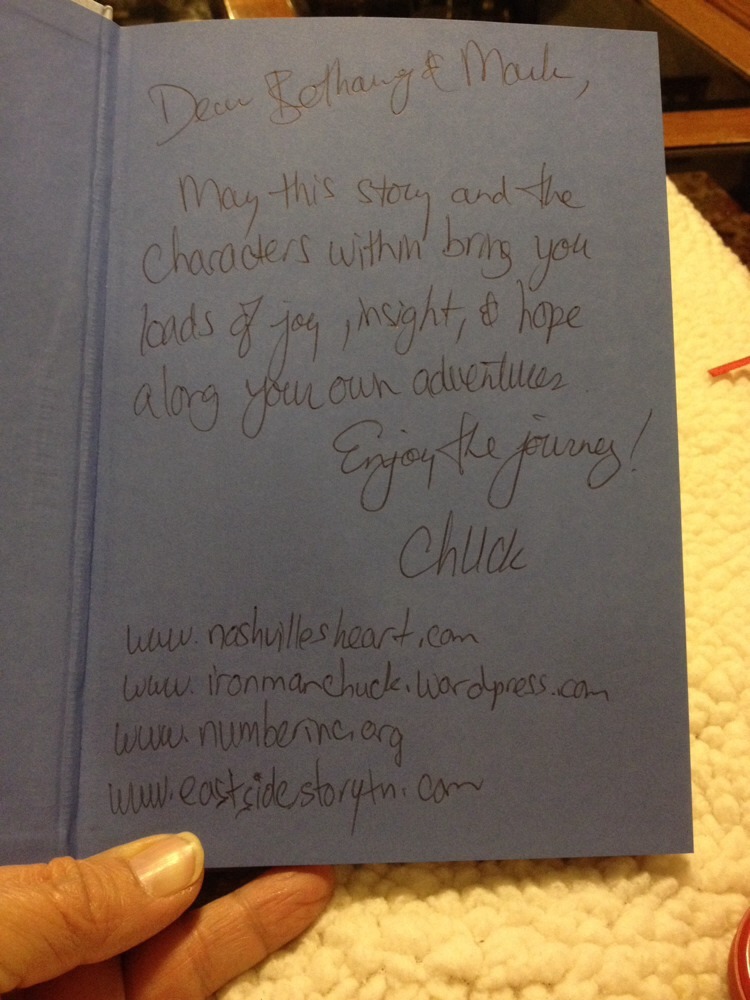 Dear Bethany & Mark,
May this story and the
characters within bring you
loads of joy, insight, & hope
along your own adventures.
Enjoy the journey!
Chuck
www.nashvillesheart.com
www.ironmanchuck.wordpress.com
www.numberinc.org
www.eastsidestorytn.com